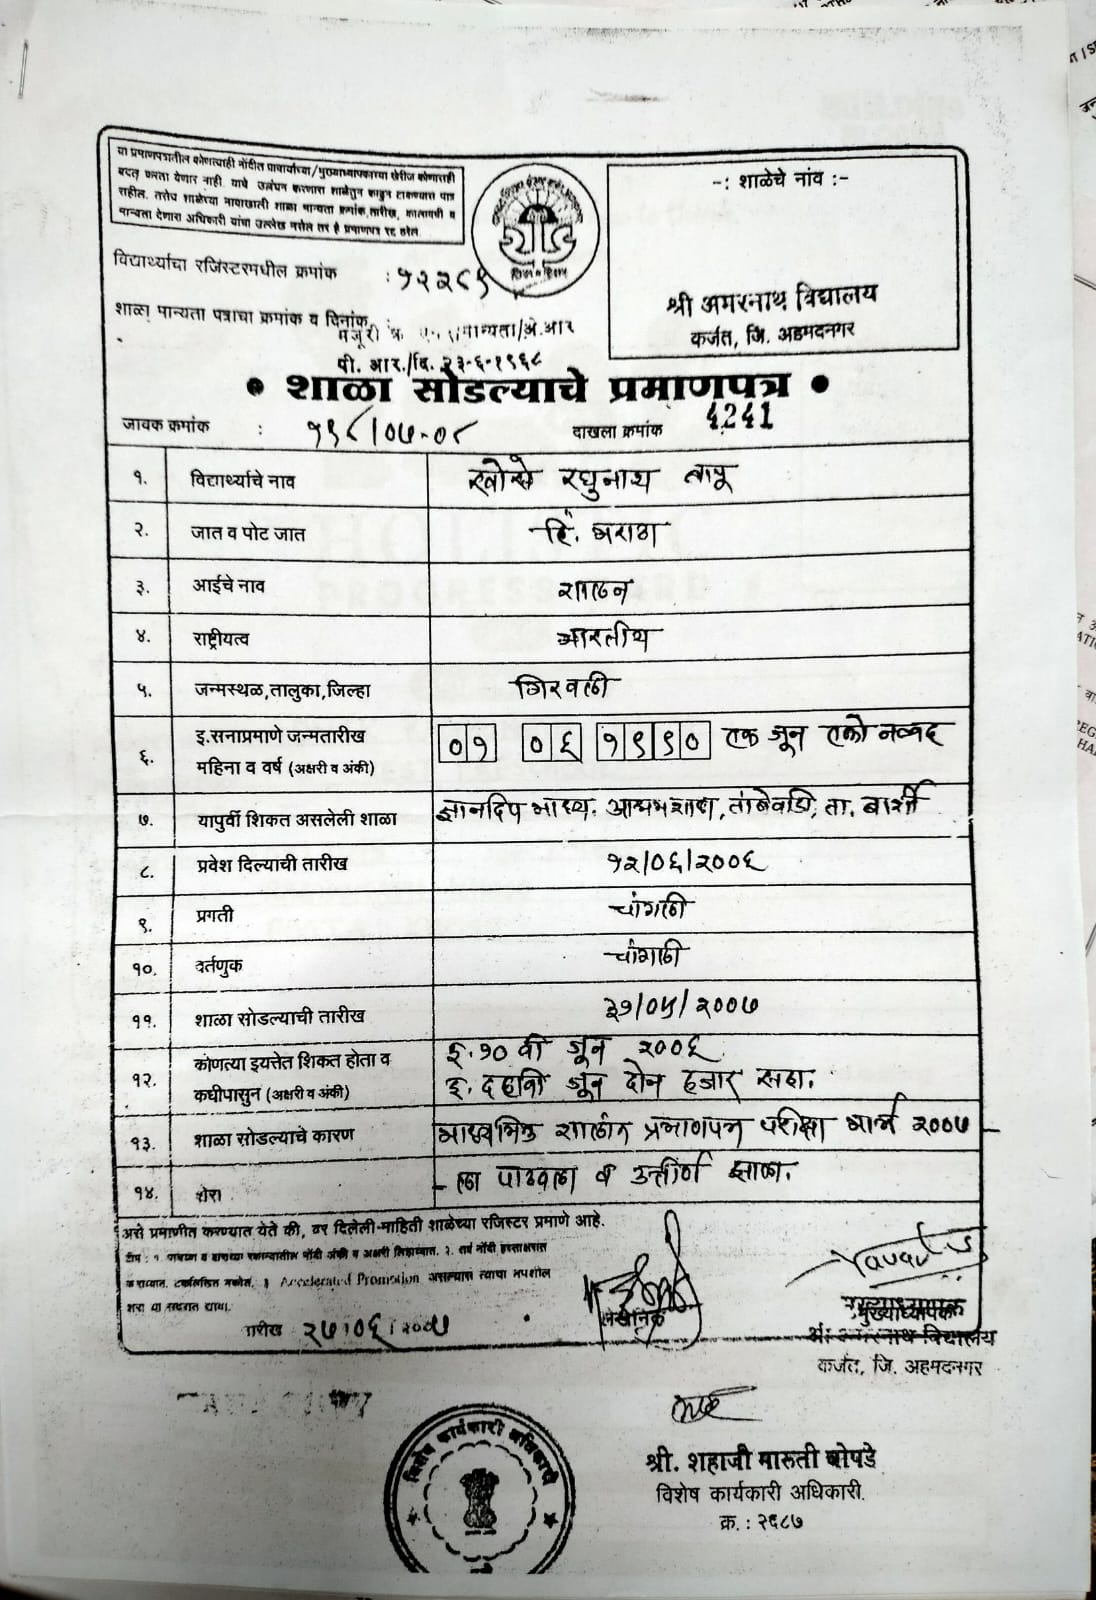 या प्रमाणपत्रातील कोणत्याही नोंदीत प्राचार्याच्या/मुख्याध्यापकाच्या खेरीज कोणासही
बदल करता येणार नाही. याचे उल्लंघन करणारास शाळेतून काढून टाकण्यास पात्र
राहील. तसेच शाळेच्या नावाखाली शाळा मान्यता क्रमांक,तारीख, कालावधी व
मान्यता देणारा अधिकारी यांचा उल्लेख नसेल तर हे प्रमाणपत्र रद्द ठरेल.
-: शाळेचे नांव :-
श्री अमरनाथ विद्यालय
कर्जत, जि. अहमदनगर
विद्यार्थ्याचा रजिस्टरमधील क्रमांक : १२२८९
शाळा मान्यता पत्राचा क्रमांक व दिनांक
मंजूरी मान्यता/अे.आर
पी. आर./दि. २३-६-१९६८
• शाळा सोडल्याचे प्रमाणपत्र •
जावक क्रमांक : १९८/०७-०८ दाखला क्रमांक 4241
१. विद्यार्थ्याचे नाव खोसे रघुनाथ बापू
२. जात व पोट जात हिं. मराठा
३. आईचे नाव शालन
४. राष्ट्रीयत्व भारतीय
५. जन्मस्थळ,तालुका,जिल्हा गिरवली
६. इ.सनाप्रमाणे जन्मतारीख
महिना व वर्ष (अक्षरी व अंकी) ०१ ०६ १९९० एक जून एको नव्वद
७. यापुर्वी शिकत असलेली शाळा ज्ञानदिप माध्य. आश्रमशाळा, तांबेवाडी, ता. बार्शी
८. प्रवेश दिल्याची तारीख १२/०६/२००६
९. प्रगती चांगली
१०. वर्तणुक चांगली
११. शाळा सोडल्याची तारीख ३१/०५/२००७
१२. कोणत्या इयत्तेत शिकत होता व
कधीपासुन (अक्षरी व अंकी) इ. १० वी जून २००६
इ. दहावी जून दोन हजार सहा.
१३. शाळा सोडल्याचे कारण माध्यमिक शालांत प्रमाणपत्र परीक्षा मार्च २००७ -
१४. शेरा - ला पाठवला व उत्तीर्ण झाला.
असे प्रमाणीत करण्यात येते की, वर दिलेली-माहिती शाळेच्या रजिस्टर प्रमाणे आहे.
Accelerated Promotion असल्यास त्याचा तपशील
शेरा या सदरात द्यावा.
तारीख २७/०६/२००७
लेखनिक
मुख्याध्यापक
श्री अमरनाथ विद्यालय
कर्जत, जि. अहमदनगर
श्री. शहाजी मारुती बोपडे
विशेष कार्यकारी अधिकारी.
क्र. : २६८७
विशेष कार्यकारी अधिकारी